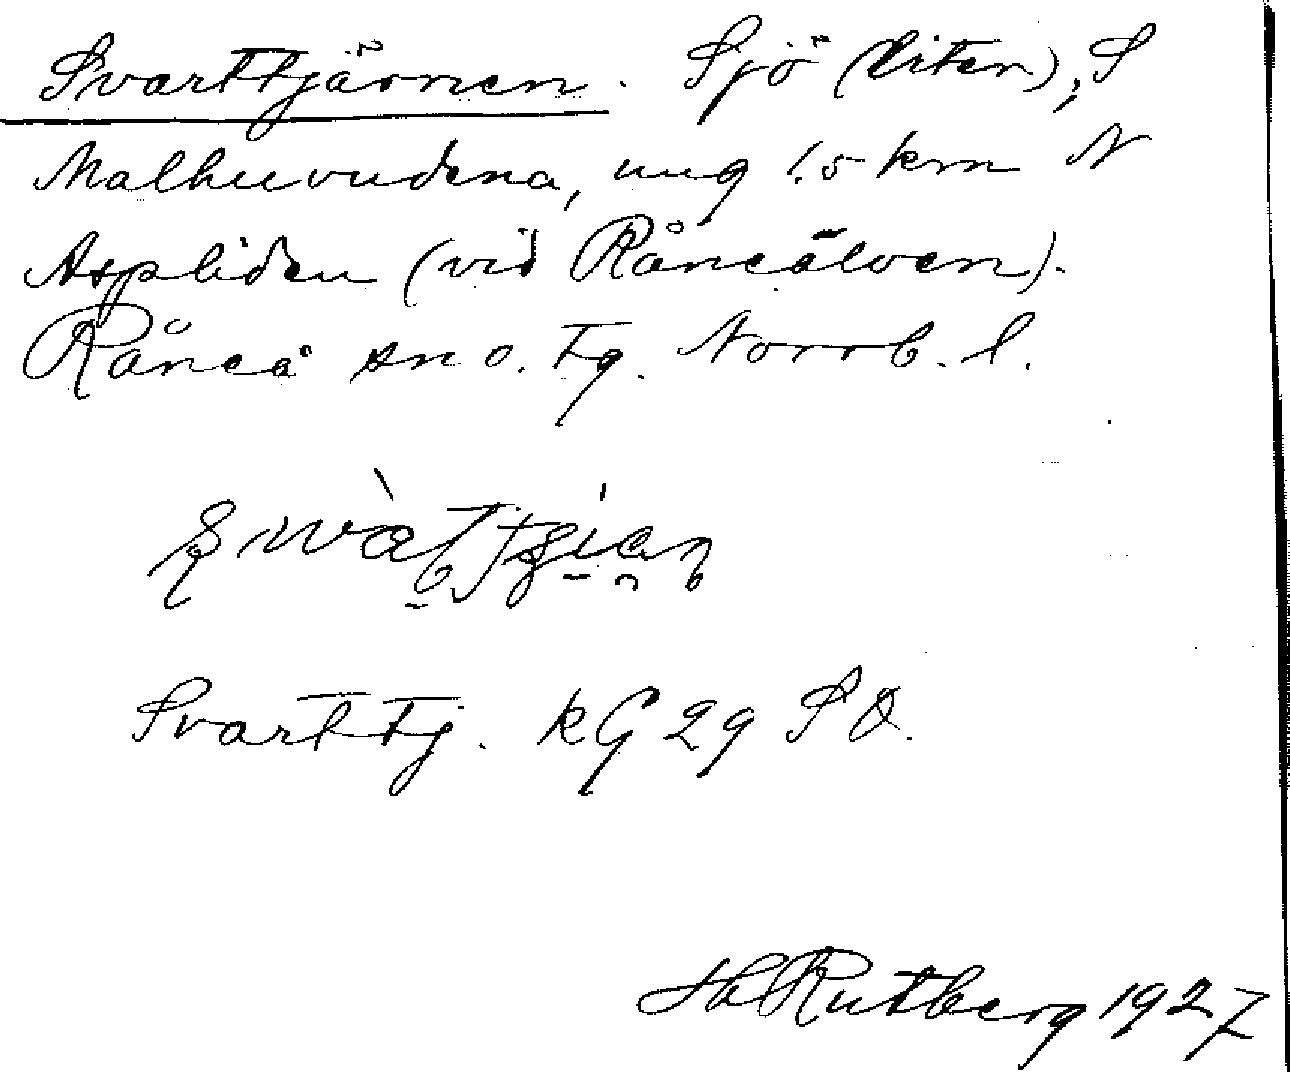 Svarttjärnen. Sjö (liten), S
Malhuvudena, ung 1.5 km N
Aspliden (vid Råneälven).
Råneå sn o. tg. Norrb. l.
Svarttj. KG 29 SO.
Hd Rutberg 1927